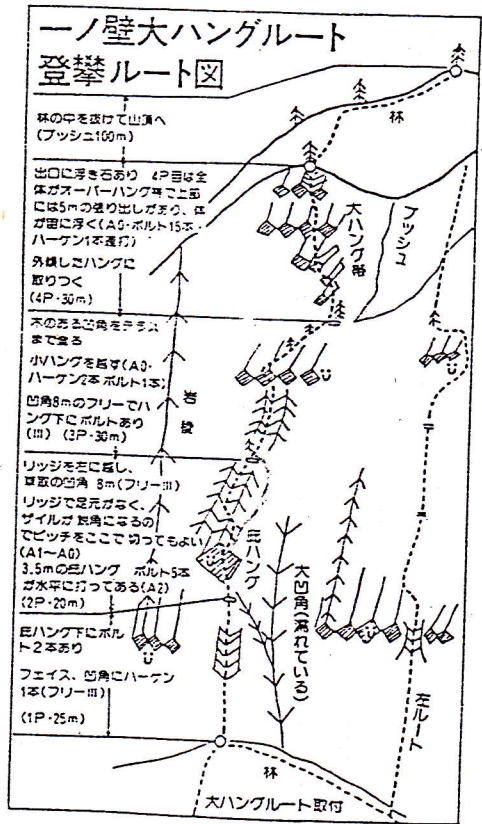 一ノ壁大ハングルート
登攀ルート図
林の中を抜けて山頂へ
(ブッシュ100m)
出口に浮き石あり 4P目は全
体がオーバーハング帯で上部
には5mの張り出しがあり、体
が宙に浮く(A0・ボルト15本・
ハーケン1本連打)
外傾したハングに
取りつく
(4P・30m)
木のある凹角をテラス
まで登る
小ハングを越す(A0・
ハーケン2本 ボルト1本)
凹角8mのフリーでハ
ング下にボルトあり
(III) (3P・30m)
リッジを左に越し、
草取の凹角 8m(フリーIII)
リッジで足元がなく、
ザイルが鋭角になるの
でピッチをここで切ってもよい
(A1〜A0)
3.5mの庇ハング ボルト5本
が水平に打ってある(A2)
(2P・20m)
庇ハング下にボル
ト2本あり
フェイス、凹角にハーケン
1本(フリーIII)
(1P・25m)
林
大ハング帯
ブッシュ
岩稜
庇ハング
大凹角(濡れている)
左ルート
林
大ハングルート取付